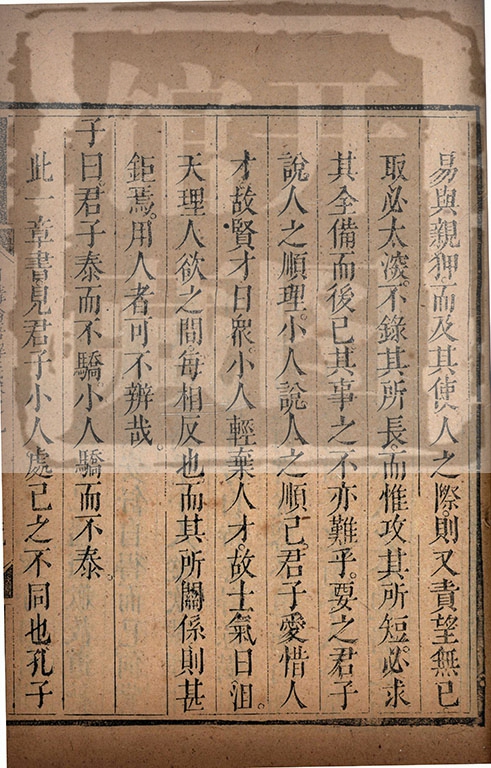 易與親狎而及其使人之際則又責望無已
取必太深不錄其所長而惟攻其所短必求
其全備而後已其事之不亦難乎要之君子
說人之順理小人說人之順己君子愛惜人
才故賢才日衆小人輕棄人才故士氣日沮
天理人欲之間每相反也而其所關係則甚
鉅焉用人者可不辨哉
子曰君子泰而不驕小人驕而不泰
此一章書見君子小人處己之不同也孔子